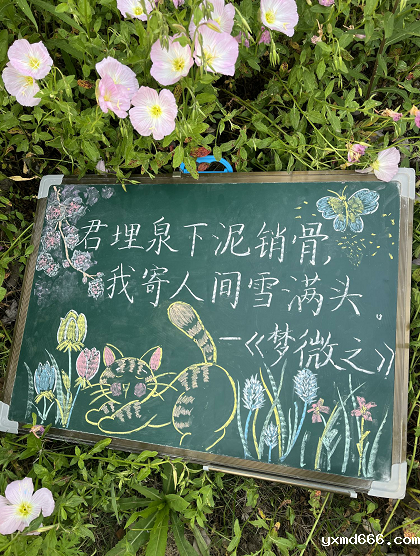 君埋泉下泥销骨,
我寄人间雪满头。
—《梦微之》
yxmd666.com